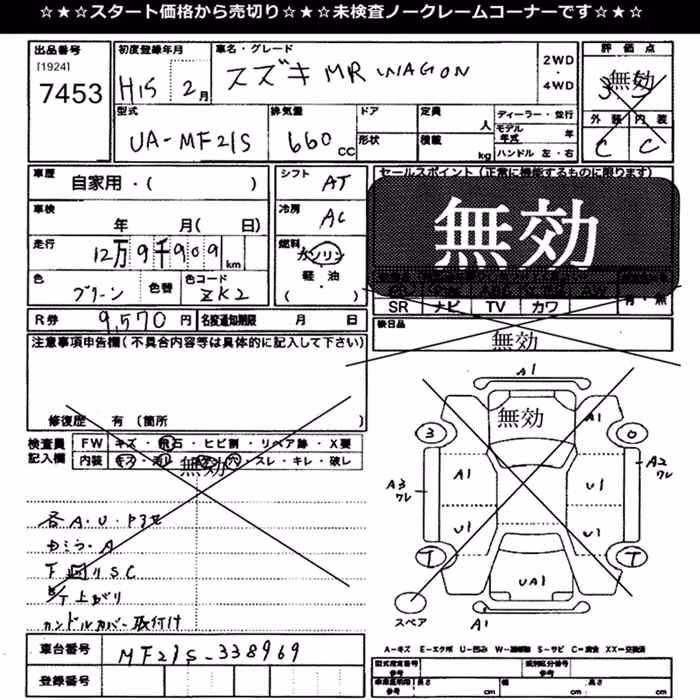 ☆★☆スタート価格から売切り☆★☆未検査ノークレームコーナーです☆★☆
出品番号 初度登録年月 車名・グレード 2WD・4WD 評価点
[1924]
7453 H15 2月 スズキ MR WAGON 無効
型式 排気量 ドア 定員 人 ディーラー・並行 外装 内装
UA-MF21S 660cc 形状 積載 kg モデル年式 年 C C
ハンドル 左・右
車歴 自家用・( ) シフト AT セールスポイント(正常に機能するものに限ります)
車検 年 月( 日) 冷房 AC 無効
走行 12万9千909km 燃料 ガソリン
軽・油
( )
色 グリーン 色替 色コード ZK2
SR ナビ TV カワ 有・無
R券 9,570円 名変通知期限 月 日 検日品
無効
注意事項申告欄(不具合内容等は具体的に記入して下さい)
修復歴 有(箇所 )
検査員記入欄 FW キズ・飛石・ヒビ割・リペア跡・X要
内装 キズ・汚レ・穴・スレ・キレ・破レ
無効
各A・U・P
下回りSC
上がり
ハンドルカバー取付け
A1
無効
A1
3 0
A1 U1
A3 ワレ A2 ワレ
U1 U1
T T
UA1
スペア
A1
車台番号 MF21S-338969
登録番号
A=キズ E=エクボ U=凹み W=補修跡 S=サビ C=腐食 XX=交換済
型式指定番号 参考 類別区分番号 参考
長さ cm 幅 cm 高さ cm